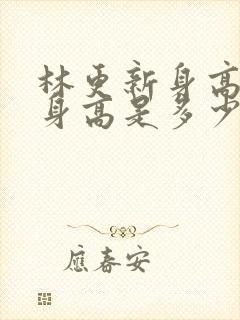 林更新身高
身高是多少
應春安